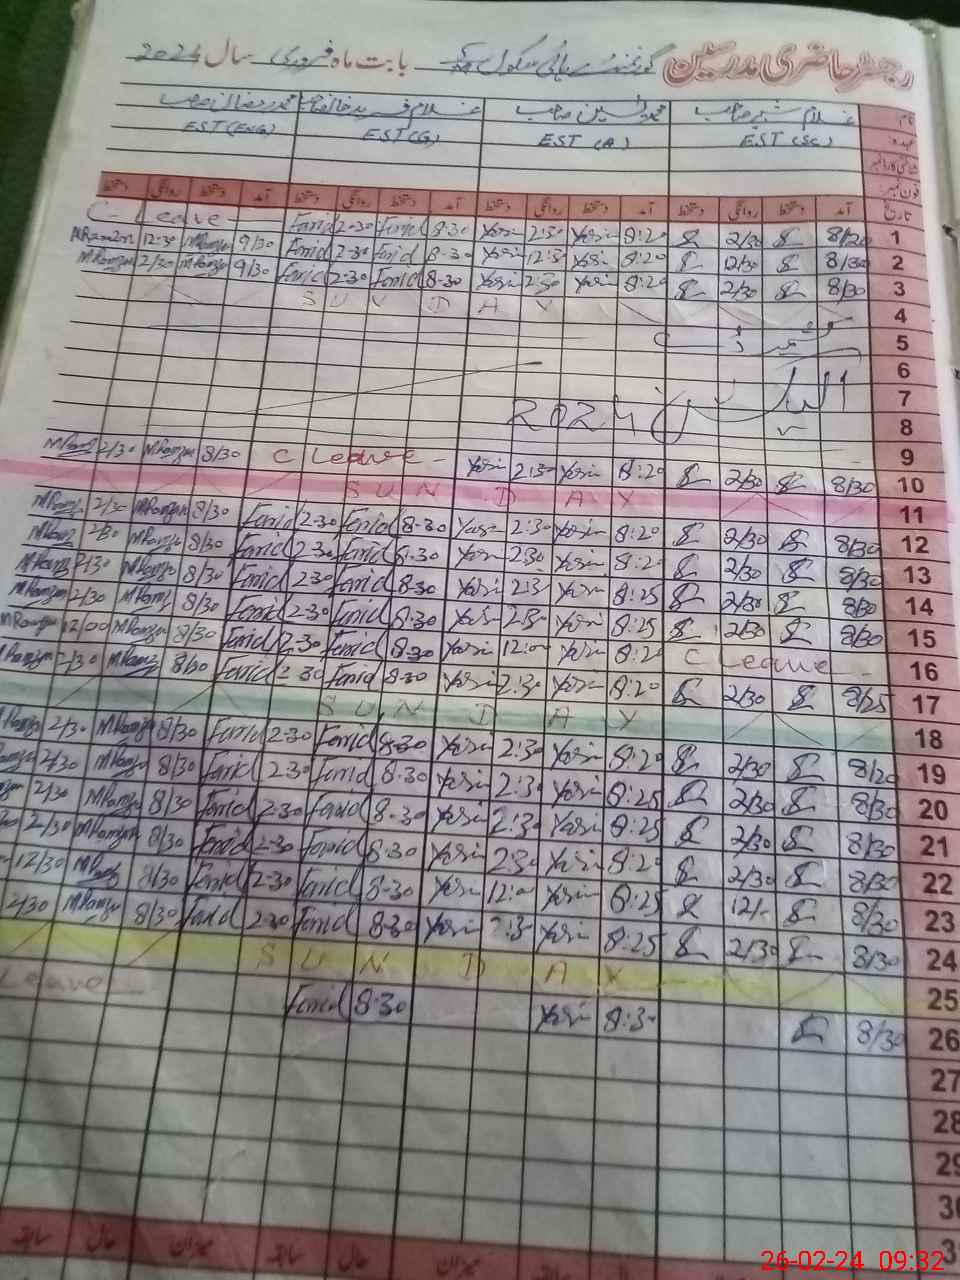 رجسٹر حاضری مدرسین گورنمنٹ ہائی سکول بابت ماہ فروری سال 2024
نام غلام شبیر صاحب محمد یٰسین صاحب غلام فرید خالد صاحب محمد رمضان صاحب
عہدہ EST (SC) EST (A) EST (G) EST (ENG)
شناختی کارڈ نمبر
فون نمبر
تاریخ آمد دستخط روانگی دستخط آمد دستخط روانگی دستخط آمد دستخط روانگی دستخط آمد دستخط روانگی دستخط
C- Leave Farid 2-30 Farid 8-30 Yasin 2:30 Yasin 8:20 2/30 8/20 1
MRamzan 12:30 MRamzan 9/30 Farid 2-30 Farid 8-30 Yasin 12:30 Yasin 8:20 12/30 8/30 2
MRamzan 2/30 MRamzan 9/30 Farid 2-30 Farid 8-30 Yasin 2:30 Yasin 8:20 2/30 8/30 3
S U N D A Y 4
5
6
الیکشن 2024 7
8
9
MRamz 2/30 MRamzan 8/30 C Leave - Yasin 2:30 Yasin 8:20 2/30 8/30 10
S U N D A Y 11
MRamz 2/30 MRamzan 8/30 Farid 2-30 Farid 8-30 Yasin 2:30 Yasin 8:20 2/30 8/30 12
MRamz 2/30 MRamzan 8/30 Farid 2-30 Farid 8-30 Yasin 2:30 Yasin 8:20 2/30 8/30 13
MRamz 2/30 MRamzan 8/30 Farid 2-30 Farid 8-30 Yasin 2:30 Yasin 8:25 2/30 8/30 14
MRamzan 2/30 MRamz 8/30 Farid 2-30 Farid 8-30 Yasin 2:30 Yasin 8:25 2/30 8/30 15
MRamzan 12/00 MRamzan 8/30 Farid 2-30 Farid 8-30 Yasin 12:00 Yasin 8:20 C Leave 16
MRamzan 2/30 MRamz 8/30 Farid 2-30 Farid 8-30 Yasin 2:30 Yasin 8:20 2/30 8/25 17
S U N D A Y 18
MRamzan 2/30 MRamzan 8/30 Farid 2-30 Farid 8-30 Yasin 2:30 Yasin 8:20 2/30 8/20 19
2/30 MRamzan 8/30 Farid 2-30 Farid 8-30 Yasin 2:30 Yasin 8:25 2/30 8/30 20
2/30 MRamzan 8/30 Farid 2-30 Farid 8-30 Yasin 2:30 Yasin 8:25 2/30 8/30 21
2/30 MRamzan 8/30 Farid 2-30 Farid 8-30 Yasin 2:30 Yasin 8:20 2/30 8/30 22
12/30 MRamz 8/30 Farid 2-30 Farid 8-30 Yasin 12:00 Yasin 8:25 12/- 8/20 23
2/30 MRamzan 8/30 Farid 2-30 Farid 8-30 Yasin 2:30 Yasin 8:25 2/30 8/30 24
S U N D A Y 25
Leave Farid 8-30 Yasin 8:30 8/30 26
27
28
29
30
میزان سابقہ حال میزان سابقہ حال
26-02-24 09:32